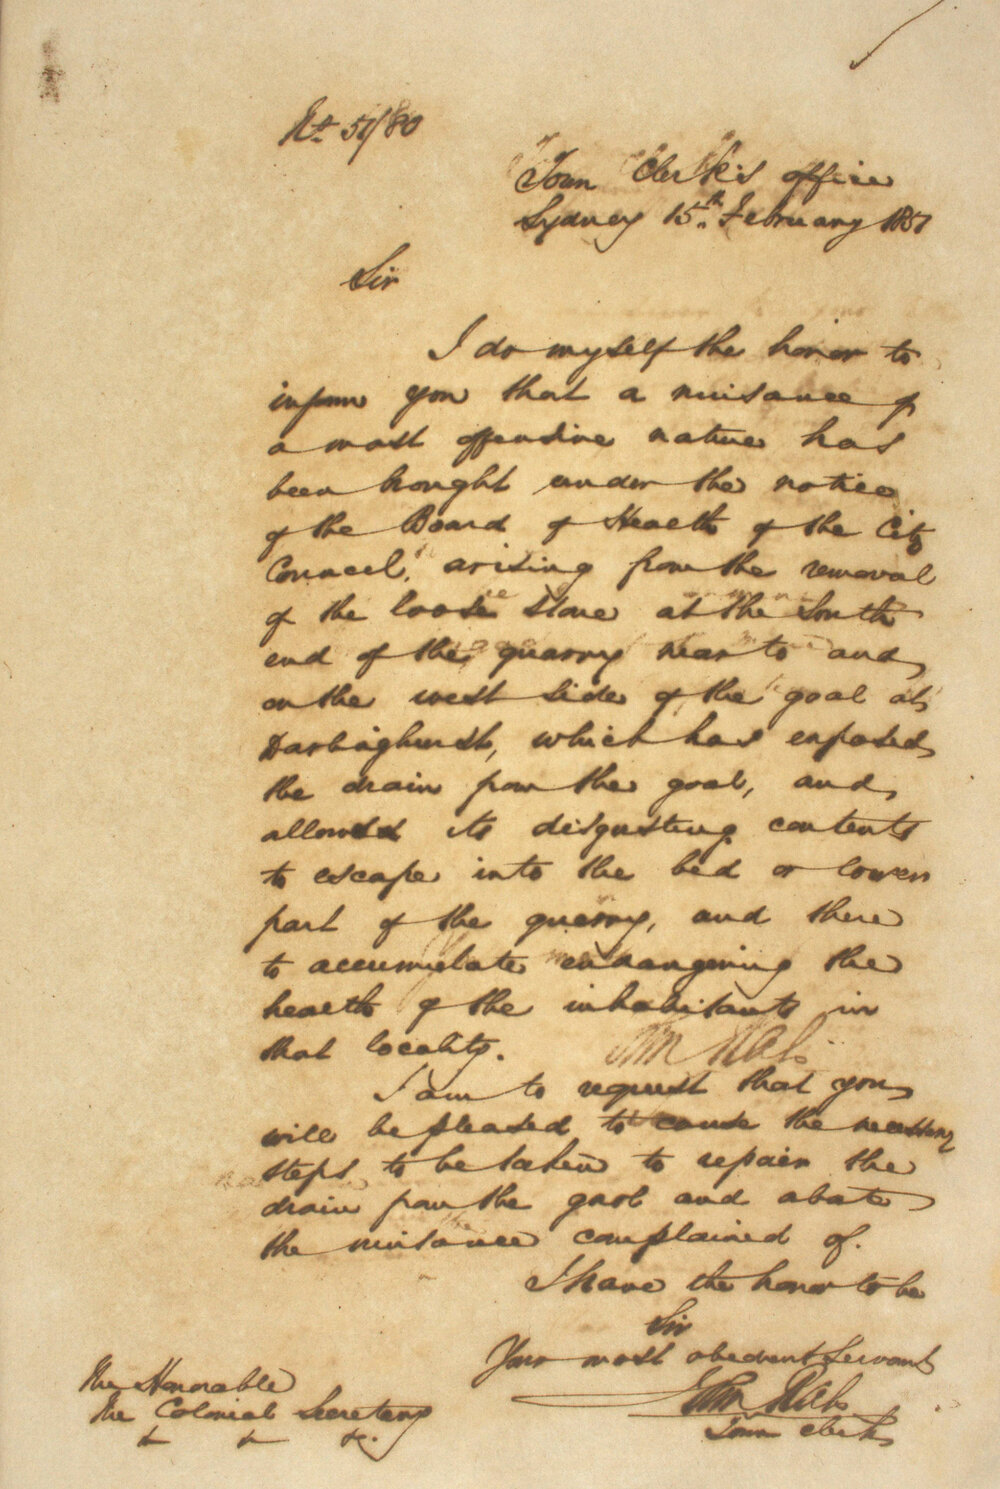 No. 51/80
Town Clerk's office
Sydney 15th February 1851
Sir
I do myself the honor to
inform you that a nuisance of
a most offensive nature has
been brought under the notice
of the Board of Health of the City
Council, arising from the removal
of the loose stone at the South
end of the quarry near to and
on the west side of the goal at
Darlinghurst, which has exposed
the drain from the goal, and
allowed its disgusting contents
to escape into the bed or lower
part of the quarry, and there
to accumulate endangering the
health of the inhabitants in
that locality.
I am to request that you
will be pleased to cause the necessary
steps to be taken to repair the
drain from the gaol and abate
the nuisance complained of.
I have the honor to be
Sir
Your most obedient Servant
Town Clerk
The Honorable
The Colonial Secretary
&c &c &c.